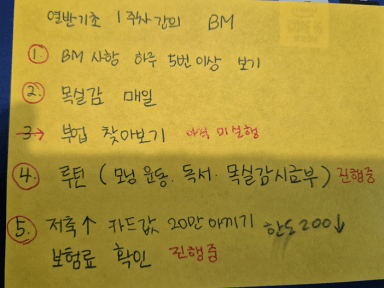 열반기초 1주차 간의 BM
1. BM 사항 하루 5번 이상 보기
2. 목실감 매일
3→ 부업 찾아보기 아직 미실행
4. 루틴 (모닝 운동. 독서. 목실감시금부) 진행중
5. 저축↑ 카드값 20만 아끼기 한도200↓
보험료 확인 진행중